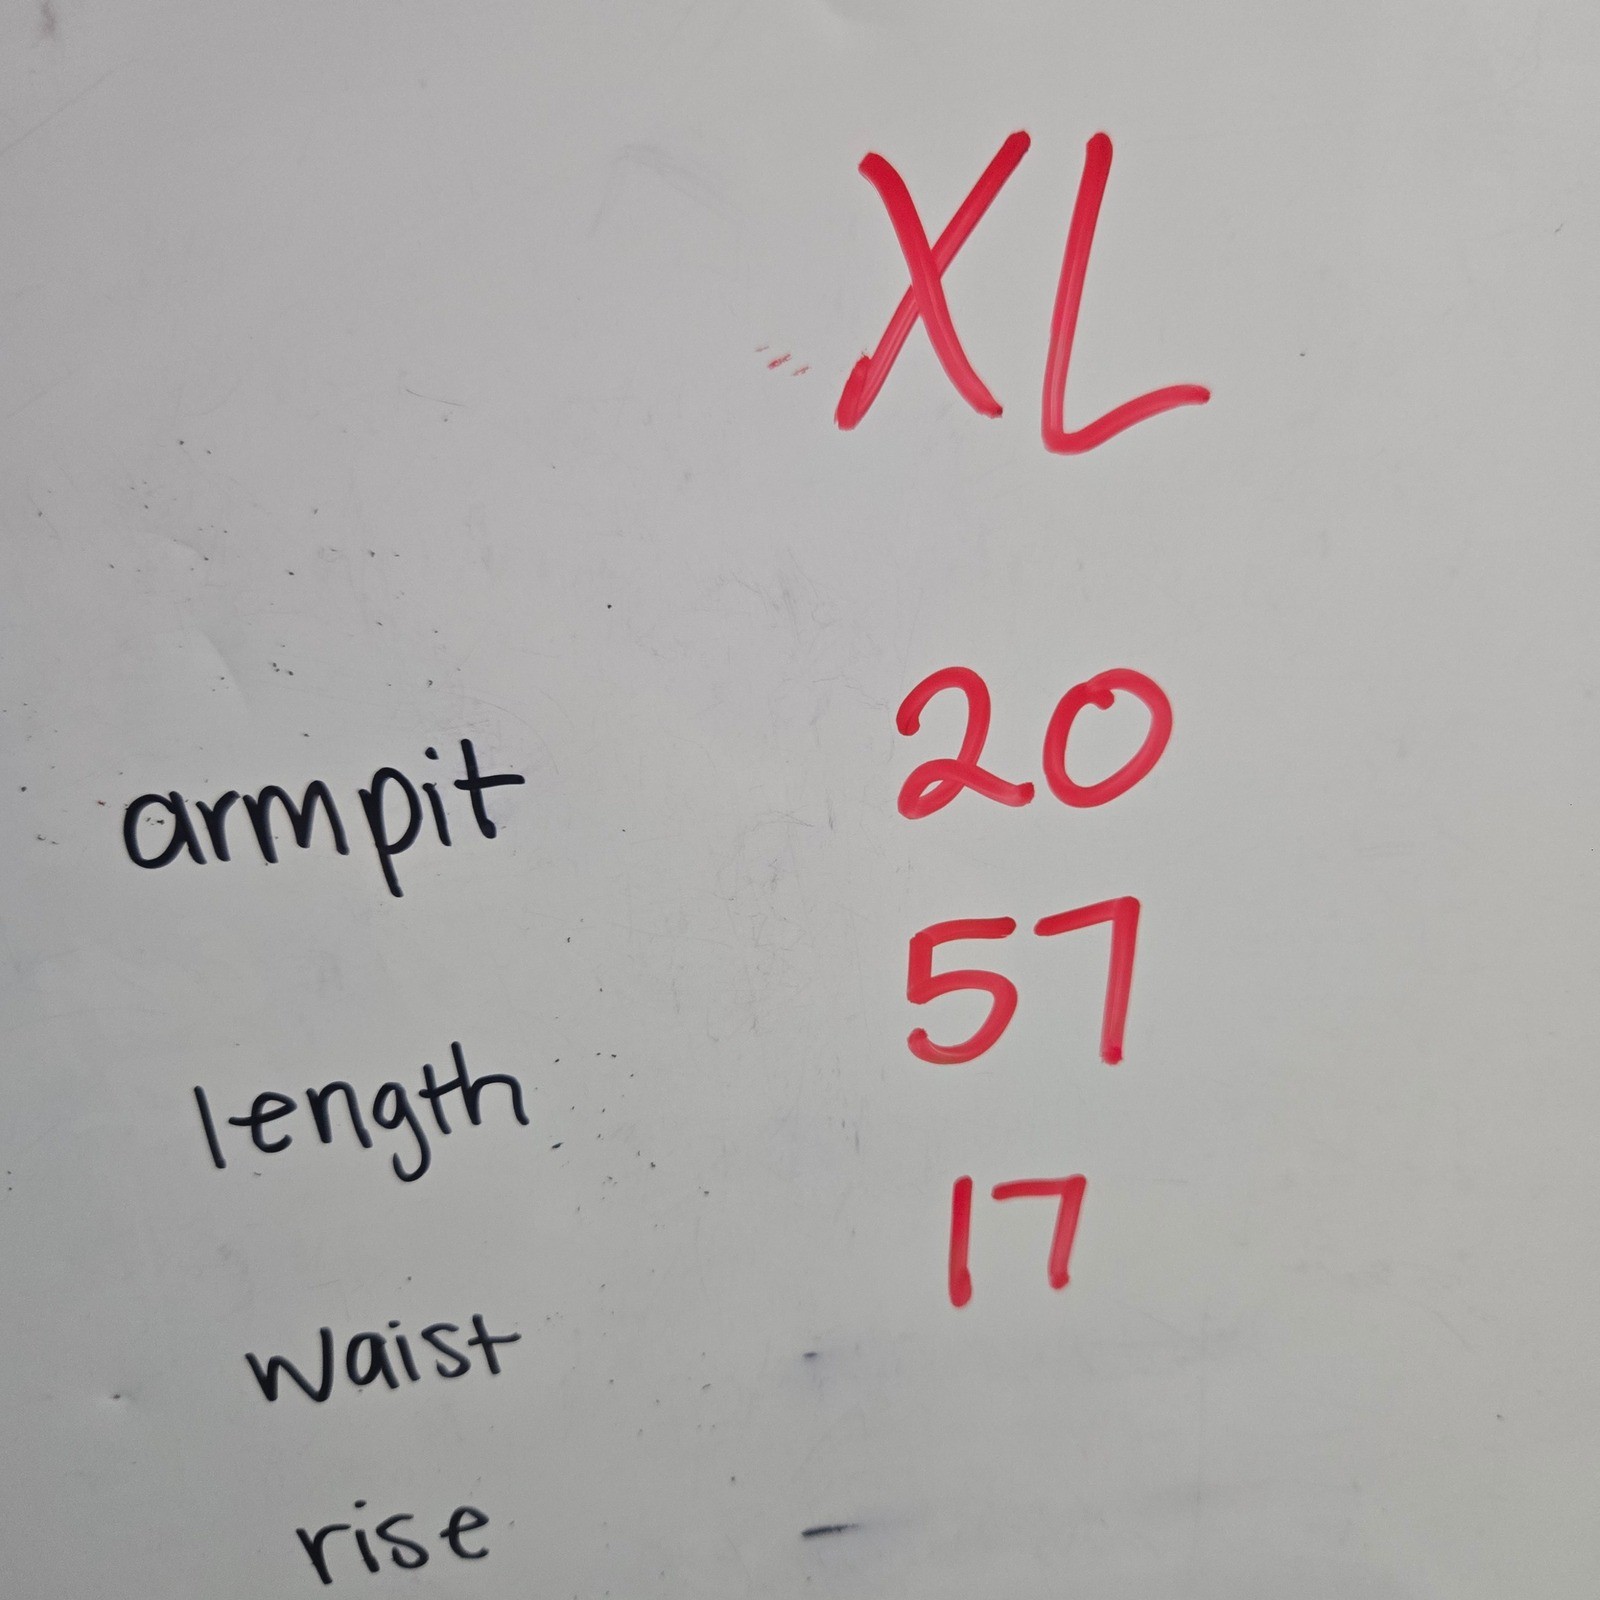 XL
armpit 20
length 57
waist 17
rise -